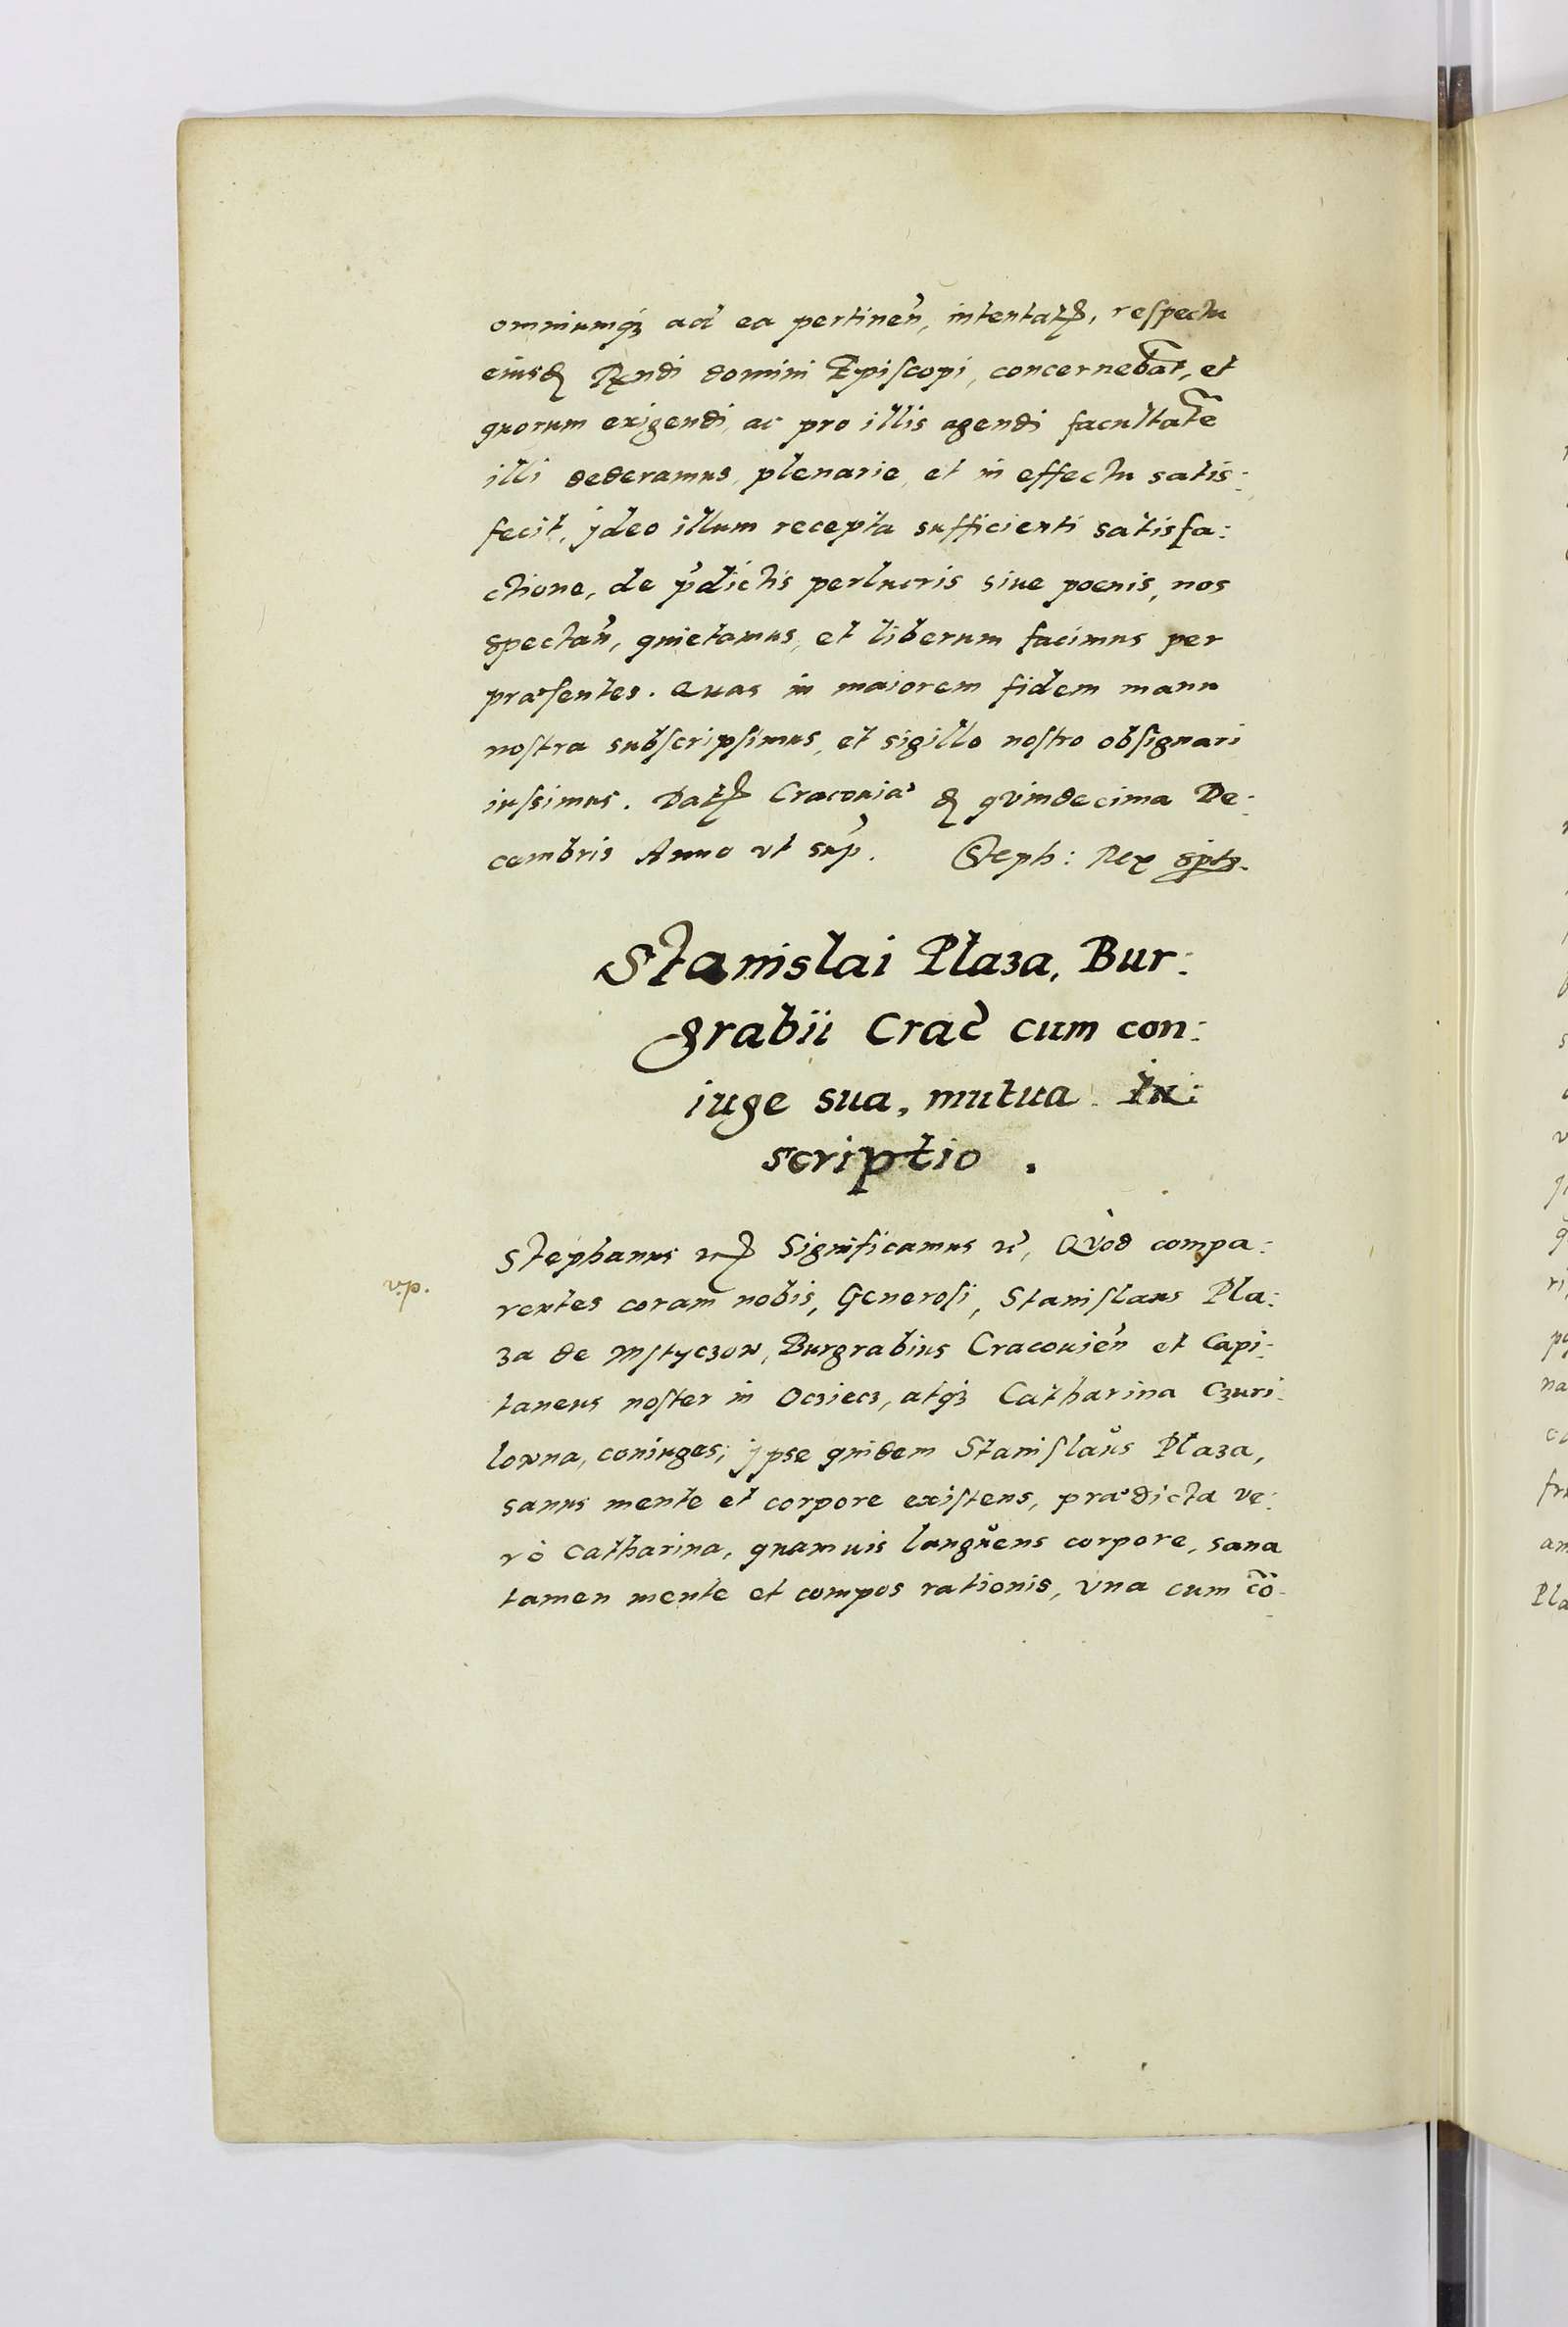 omniumq́ꝫ ad ea pertineñ, intentatꝭ, respectu
eiusd Rx̃ndi domini Episcopi, concernebãt, et
quorum exigendi, ac pro illis agendi facultatẽ
illi dederamus, plenarie, et in effectu satis:
fecit, ydeo illum recepta sufficienti satisfa:
ctione, de p̃dictis perlucris siue poenis, nos
spectañ, quietamus, et liberum facimus per
præsentes. Quas in maiorem fidem manu
nostra subscripsimus, et sigillo nostro obsignari
iussimus. Datꝭ Cracouiæ d quindecima De:
cembris Anno vt sup̃. Steph: Rex sp̃ts.
Stanislai Plaza, Bur:
grabii Crac̃ cum con:
iuge sua, mutua In:
scriptio.
Stephanus ꝛꝭ Significamus ꝛc̃, Quòd compa:
v.p.
rentes coram nobis, Generosi, Stanislaus Pla:
za de Mstyczow, Burgrabius Cracouień et Capi:
taneus noster in Ocziecz, atq́ꝫ Catharina Czuri:
lowna, coniuges; ypse quidem Stanislaus Plaza,
sanus mente et corpore existens, prædicta ve:
rò Catharina, quamuis languens corpore, sana
tamen mente et compos rationis, vna cum cõ-